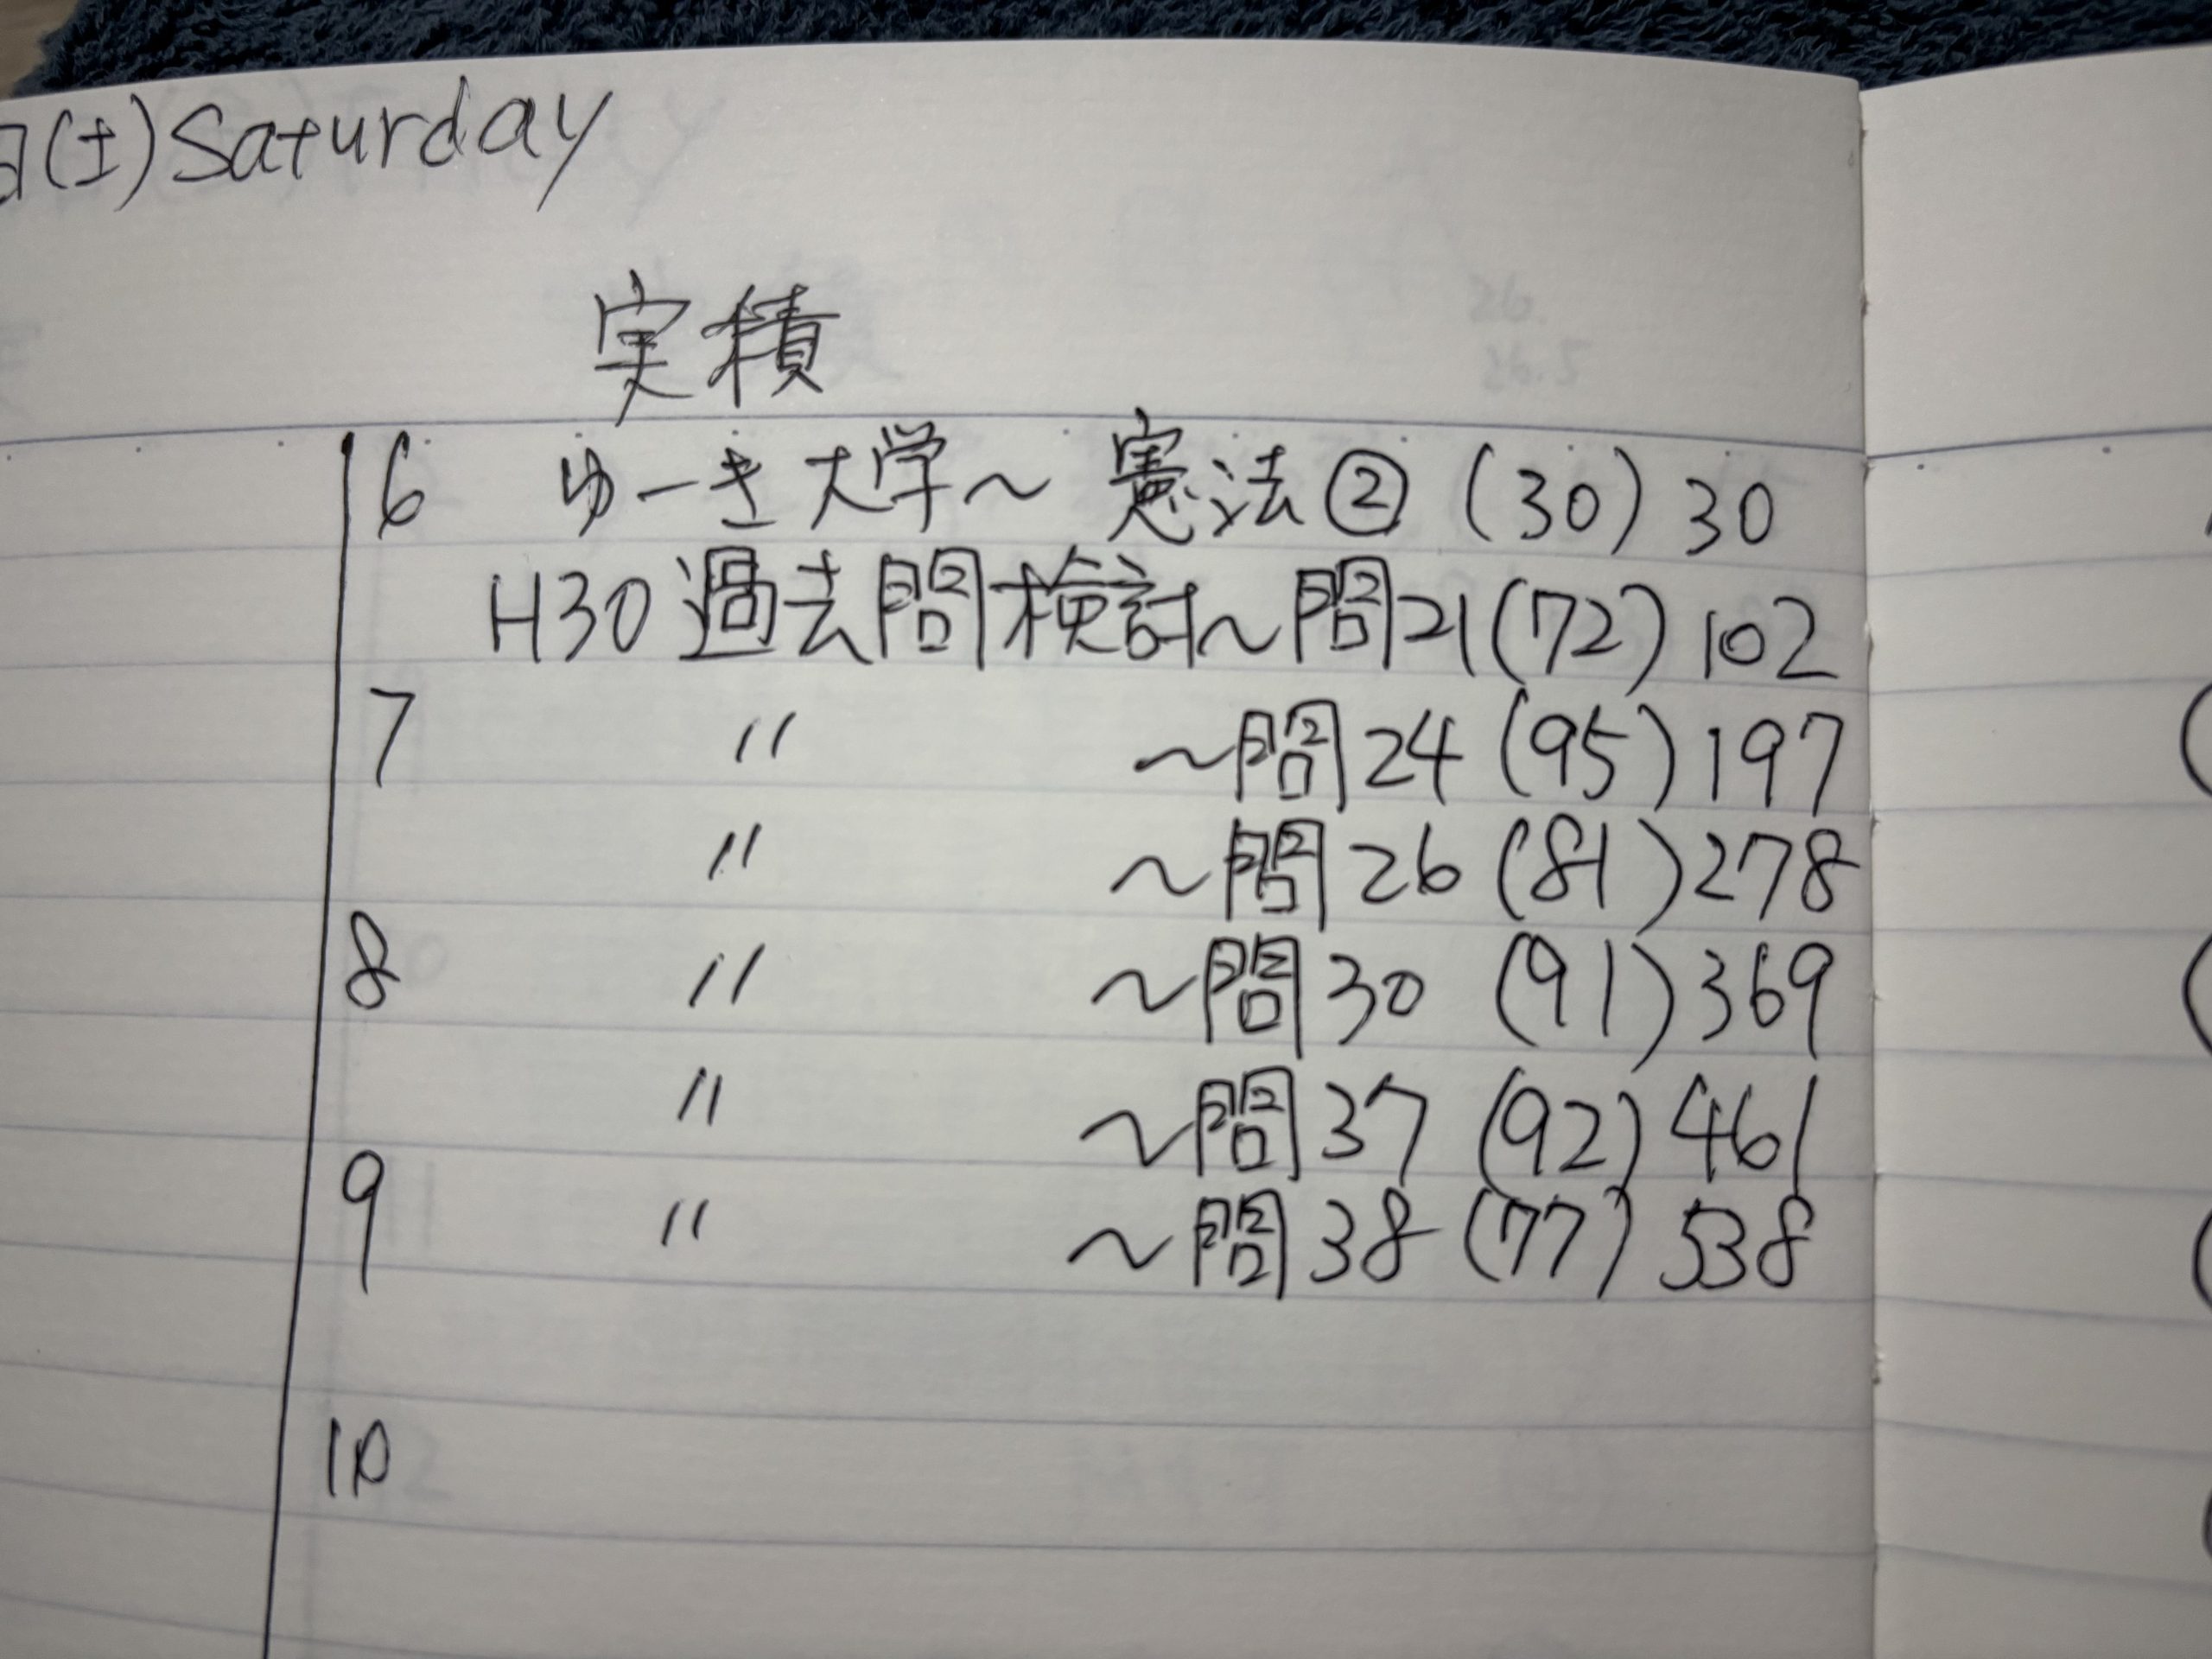 日(土)Saturday
実積
6 ゆーき大学〜憲法② (30) 30
H30過去問検討〜問21(72) 102
7 〃 〜問24(95) 197
〃 〜問26(81) 278
8 〃 〜問30(91) 369
〃 〜問37(92) 461
9 〃 〜問38(77) 538
10